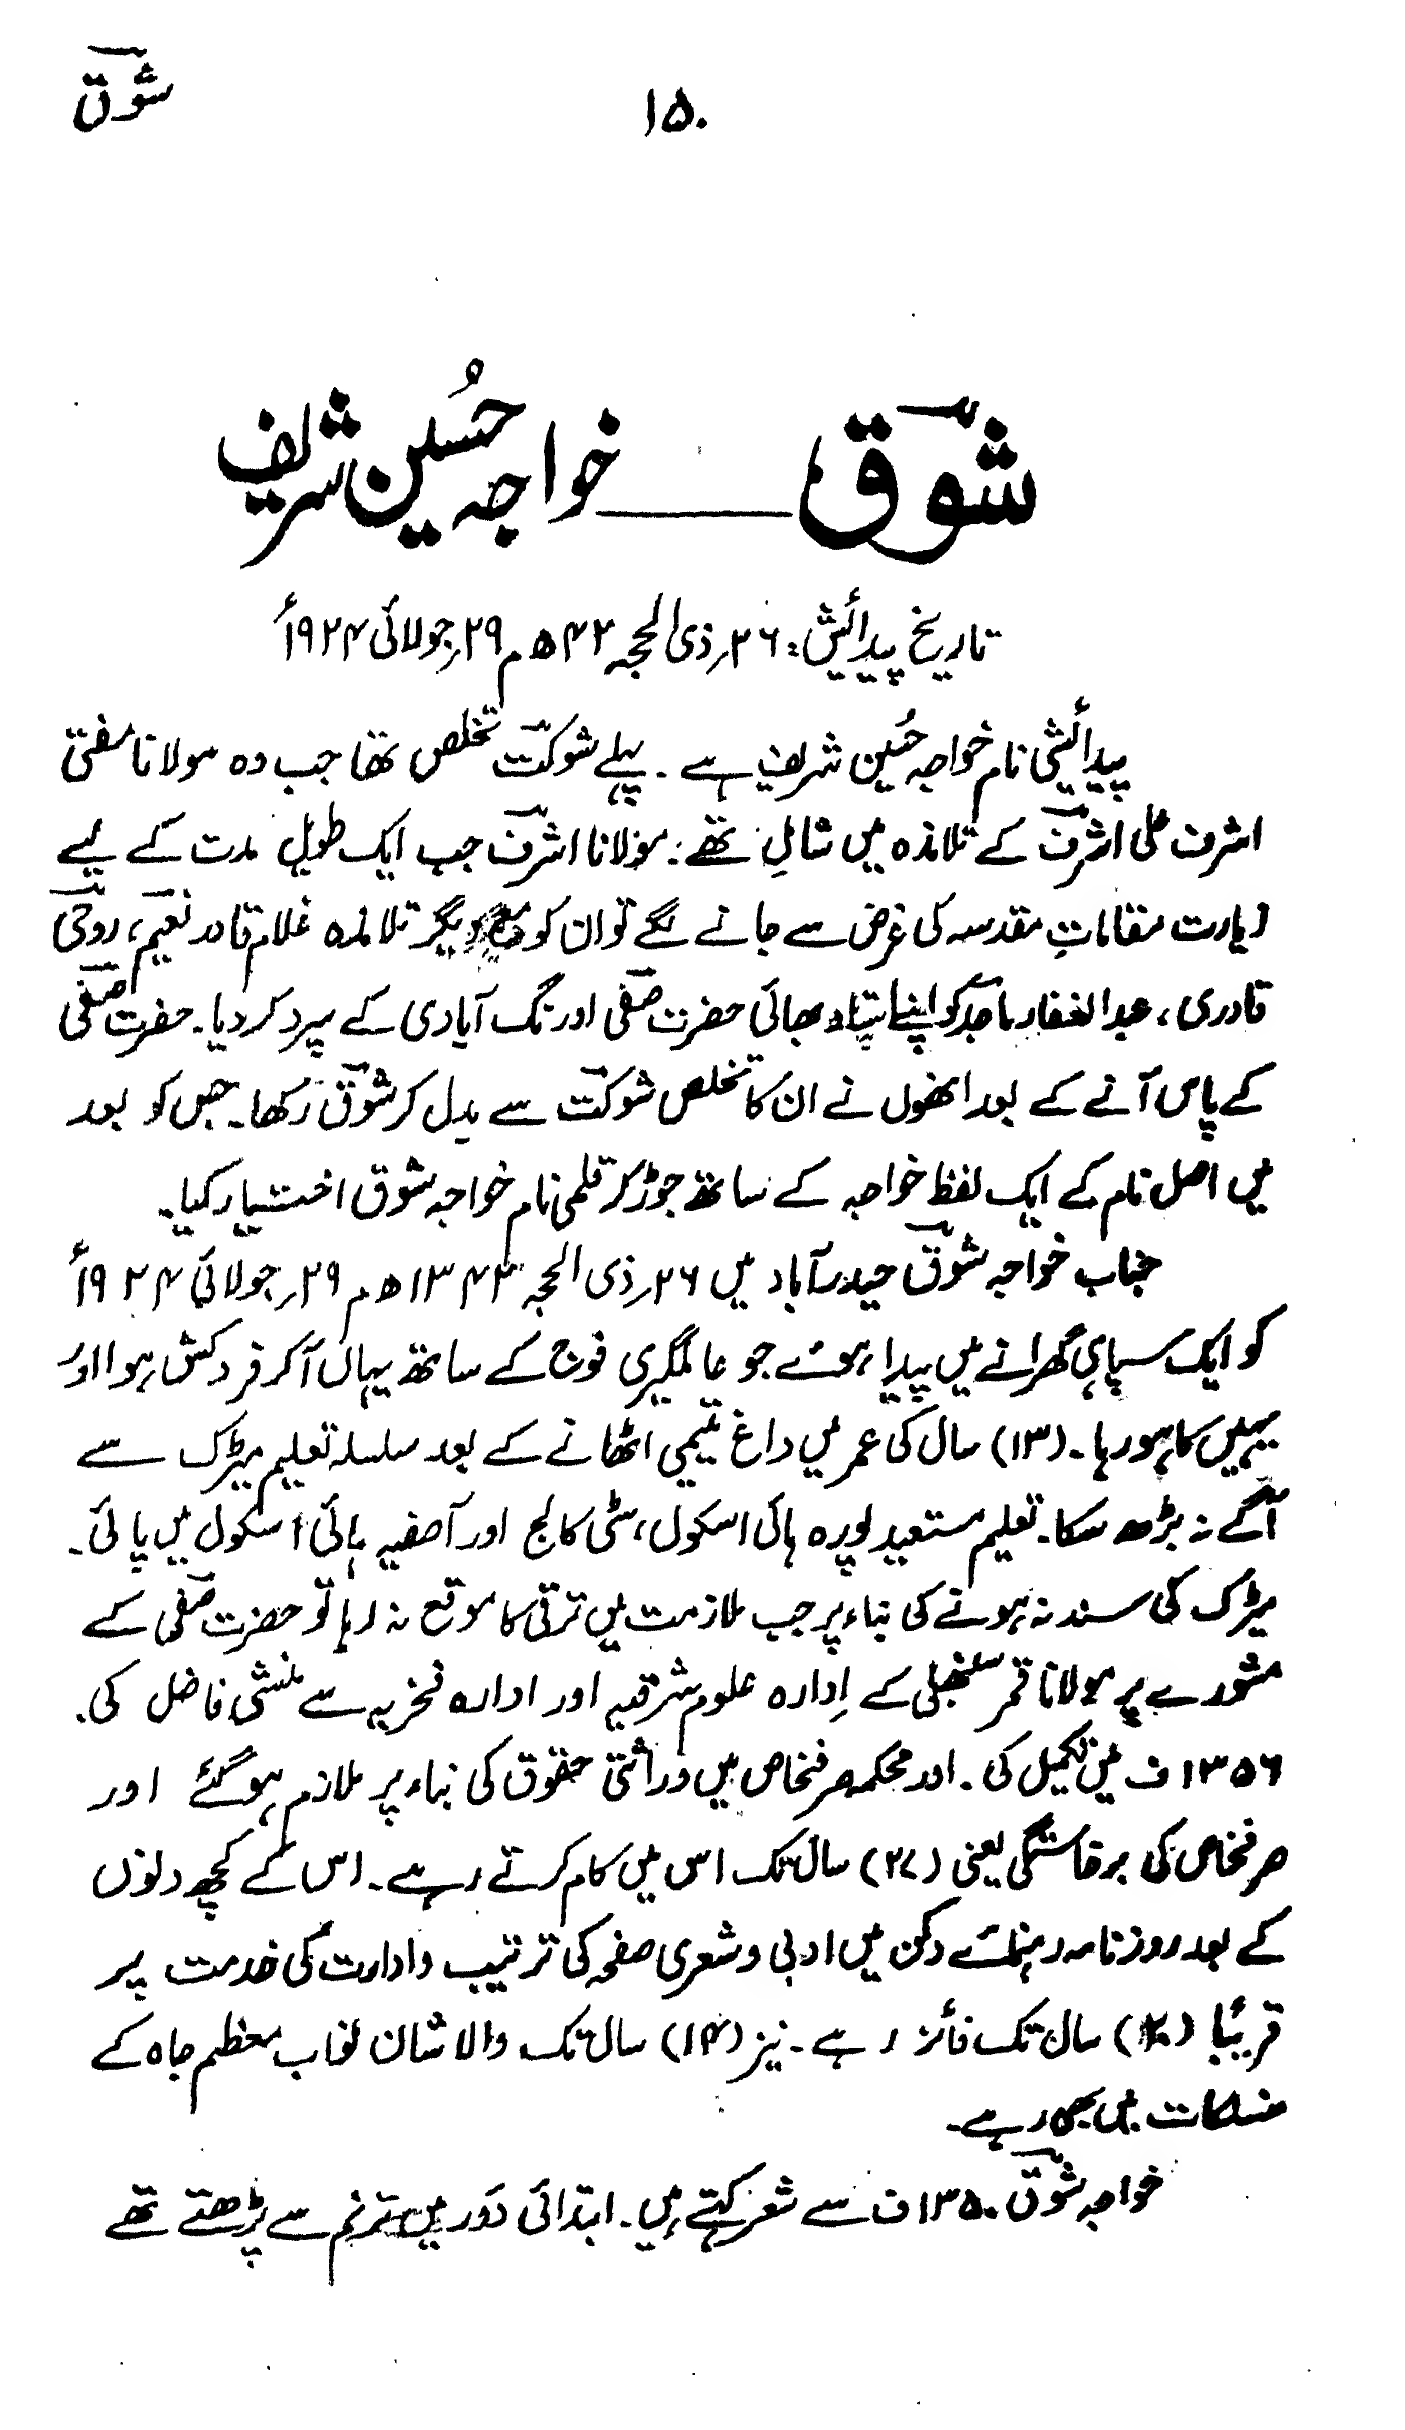 شوقؔ
۱۵۰
شوقؔ ـــــ خواجہ حُسین شریف
تاریخ پیدائیش: ۲۶؍ ذی الحجہ ۴۲ھ م ۲۹؍ جولائی ۱۹۲۴ء
پیدائیشی نام خواجہ حُسین شریف ہے ۔ پہلے شوکتؔ تخلص تھا جب وہ مولانا مفتی
اشرف علی اشرفؔ کے تلامذہ میں شامل تھے ۔ مولانا اشرفؔ جب ایک طویل مدت کے لیے
زیارت مقاماتِ مقدسہ کی غرض سے جانے لگے تو ان کو مع دیگر تلامذہ غلام قادر نعیمؔ، روحیؔ
قادری، عبدالغفار ماجدؔ کو اپنے استاد بھائی حضرت صفیؔ اورنگ آبادی کے سپرد کر دیا۔ حضرت صفیؔ
کے پاس آنے کے بعد انھوں نے ان کا تخلص شوکتؔ سے بدل کر شوقؔ رکھا۔ جس کو بعد
میں اصل نام کے ایک لفظ خواجہ کے ساتھ جوڑ کر قلمی نام خواجہ شوق اختیار کیا۔
جناب خواجہ شوقؔ حیدرآباد میں ۲۶؍ ذی الحجہ ۱۳۴۲ھ م ۲۹؍ جولائی ۱۹۲۴ء
کو ایک سپاہی گھرانے میں پیدا ہوئے جو عالمگیری فوج کے ساتھ یہاں آکر فردکش ہوا اور
یہیں کا ہو رہا۔ (۱۳) سال کی عمر میں داغ یتیمی اٹھانے کے بعد سلسلہ تعلیم میٹرک سے
آگے نہ بڑھ سکا۔ تعلیم مستعید پورہ ہائی اسکول، سٹی کالج اور آصفیہ ہائی اسکول میں پائی۔
میٹرک کی سند نہ ہونے کی بناء پر جب ملازمت میں ترقی کا موقع نہ رہا تو حضرت صفیؔ کے
مشورے پر مولانا قمر سنبھلی کے اِدارہ علوم شرقیہ اور ادارہ فخریہ سے منشی فاضل کی۔
۱۳۵۶ ف میں تکمیل کی ۔ اور محکمہ صرفخاص میں وراثتی حقوق کی بناء پر ملازم ہو گئے اور
صرفخاص کی برخاستگی یعنی (۲۷) سال تک اس میں کام کرتے رہے۔ اس کے کچھ دنوں
کے بعد روزنامہ رہنمائے دکن میں ادبی و شعری صفحہ کی ترتیب و ادارت کی خدمت پر
قریبًا سال تک فائز رہے ۔ نیز (۱۴) سال تک والا شان نواب معظم جاہ کے
منسلکات میں بھی رہے۔
خواجہ شوقؔ ۱۳۵۰ ف سے شعر کہتے ہیں۔ ابتدائی دَور میں ترنم سے پڑھتے تھے